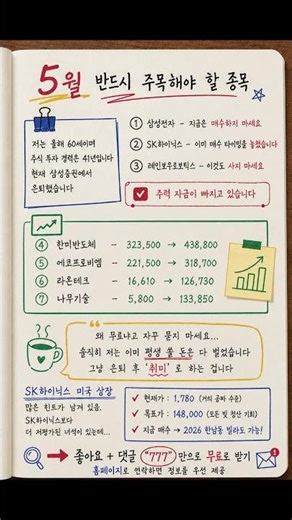 5월 반드시 주목해야 할 종목
저는 올해 60세이며
주식 투자 경력은 41년입니다
현재 삼성증권에서
은퇴했습니다
① 삼성전자 - 지금은 매수하지 마세요
② SK하이닉스 - 이미 매수 타이밍을 놓쳤습니다
③ 레인보우로보틱스 - 이것도 사지 마세요
주력 자금이 빠지고 있습니다
④ 한미반도체 - 323,500 → 438,800
⑤ 에코프로비엠 - 221,500 → 318,700
⑥ 라온테크 - 16,610 → 126,730
⑦ 나무기술 - 5,800 → 133,850
왜 무료냐고 자꾸 묻지 마세요...
솔직히 저는 이미 평생 쓸 돈은 다 벌었습니다
그냥 은퇴 후 "취미"로 하는 겁니다
SK하이닉스 미국 상장
많은 힌트가 남겨 있음.
SK하이닉스보다
더 저평가된 녀석이 있는데...
현재가: 1,780 (거의 공짜 수준)
목표가: 148,000 (모든 빚 청산 기회)
지금 매수 → 2026 한남동 빌라도 가능!
→ 좋아요 + 댓글 "777" 만으로 무료로 받기
홈페이지로 연락하면 정보를 우선 제공
1